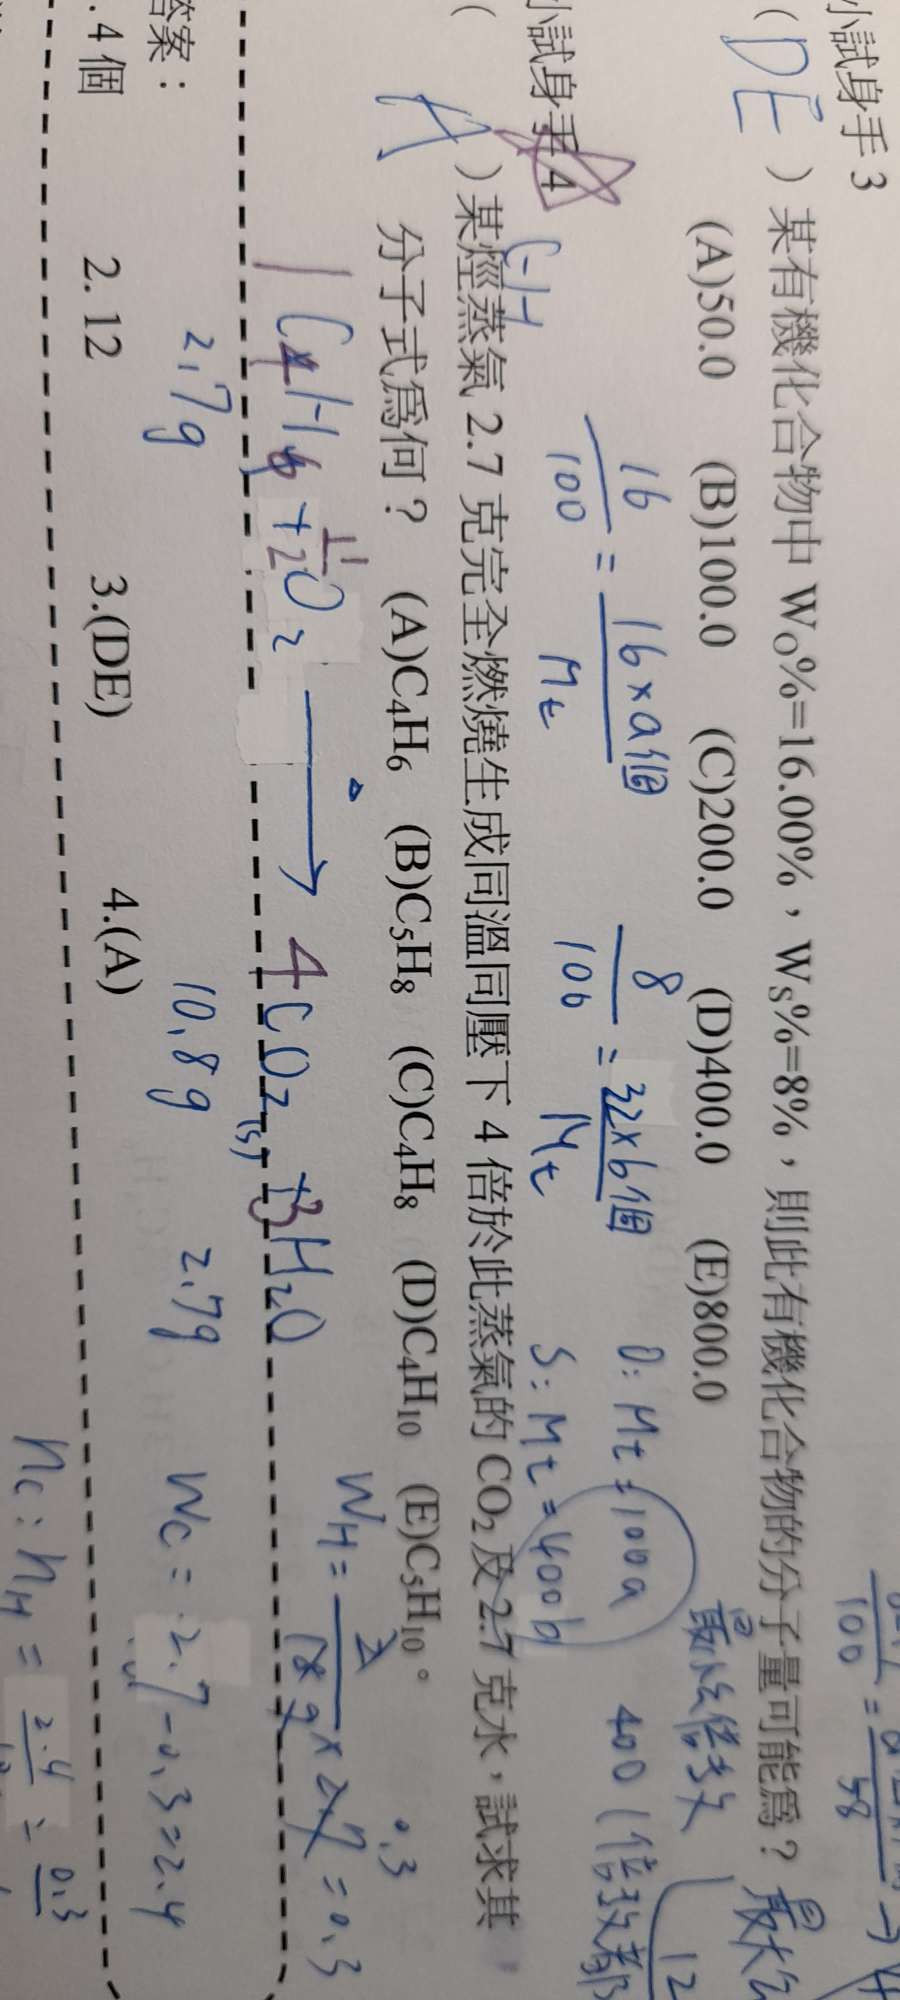 小試身手 3
( DE ) 某有機化合物中 Wo%=16.00%，Ws%=8%，則此有機化合物的分子量可能為？
(A)50.0 (B)100.0 (C)200.0 (D)400.0 (E)800.0
最大公
最小公倍數
16/100 = 16×a個/Mt
8/100 = 32×b個/Mt
O: Mt = 100a
S: Mt = 400b
400 (倍數都
小試身手 4
C-H
( A ) 某烴蒸氣 2.7 克完全燃燒生成同溫同壓下 4 倍於此蒸氣的 CO₂ 及 2.7 克水，試求其
分子式為何？ (A)C₄H₆ (B)C₅H₈ (C)C₄H₈ (D)C₄H₁₀ (E)C₅H₁₀。
1 C₄H₆ + 11/2 O₂ → 4CO₂ + 3H₂O
2.7g 10.8g 2.7g
WH = 2/18 × 2.7 = 0.3
Wc = 2.7-0.3=2.4
nc : nH =
答案：
4 個 2. 12 3.(DE) 4.(A)